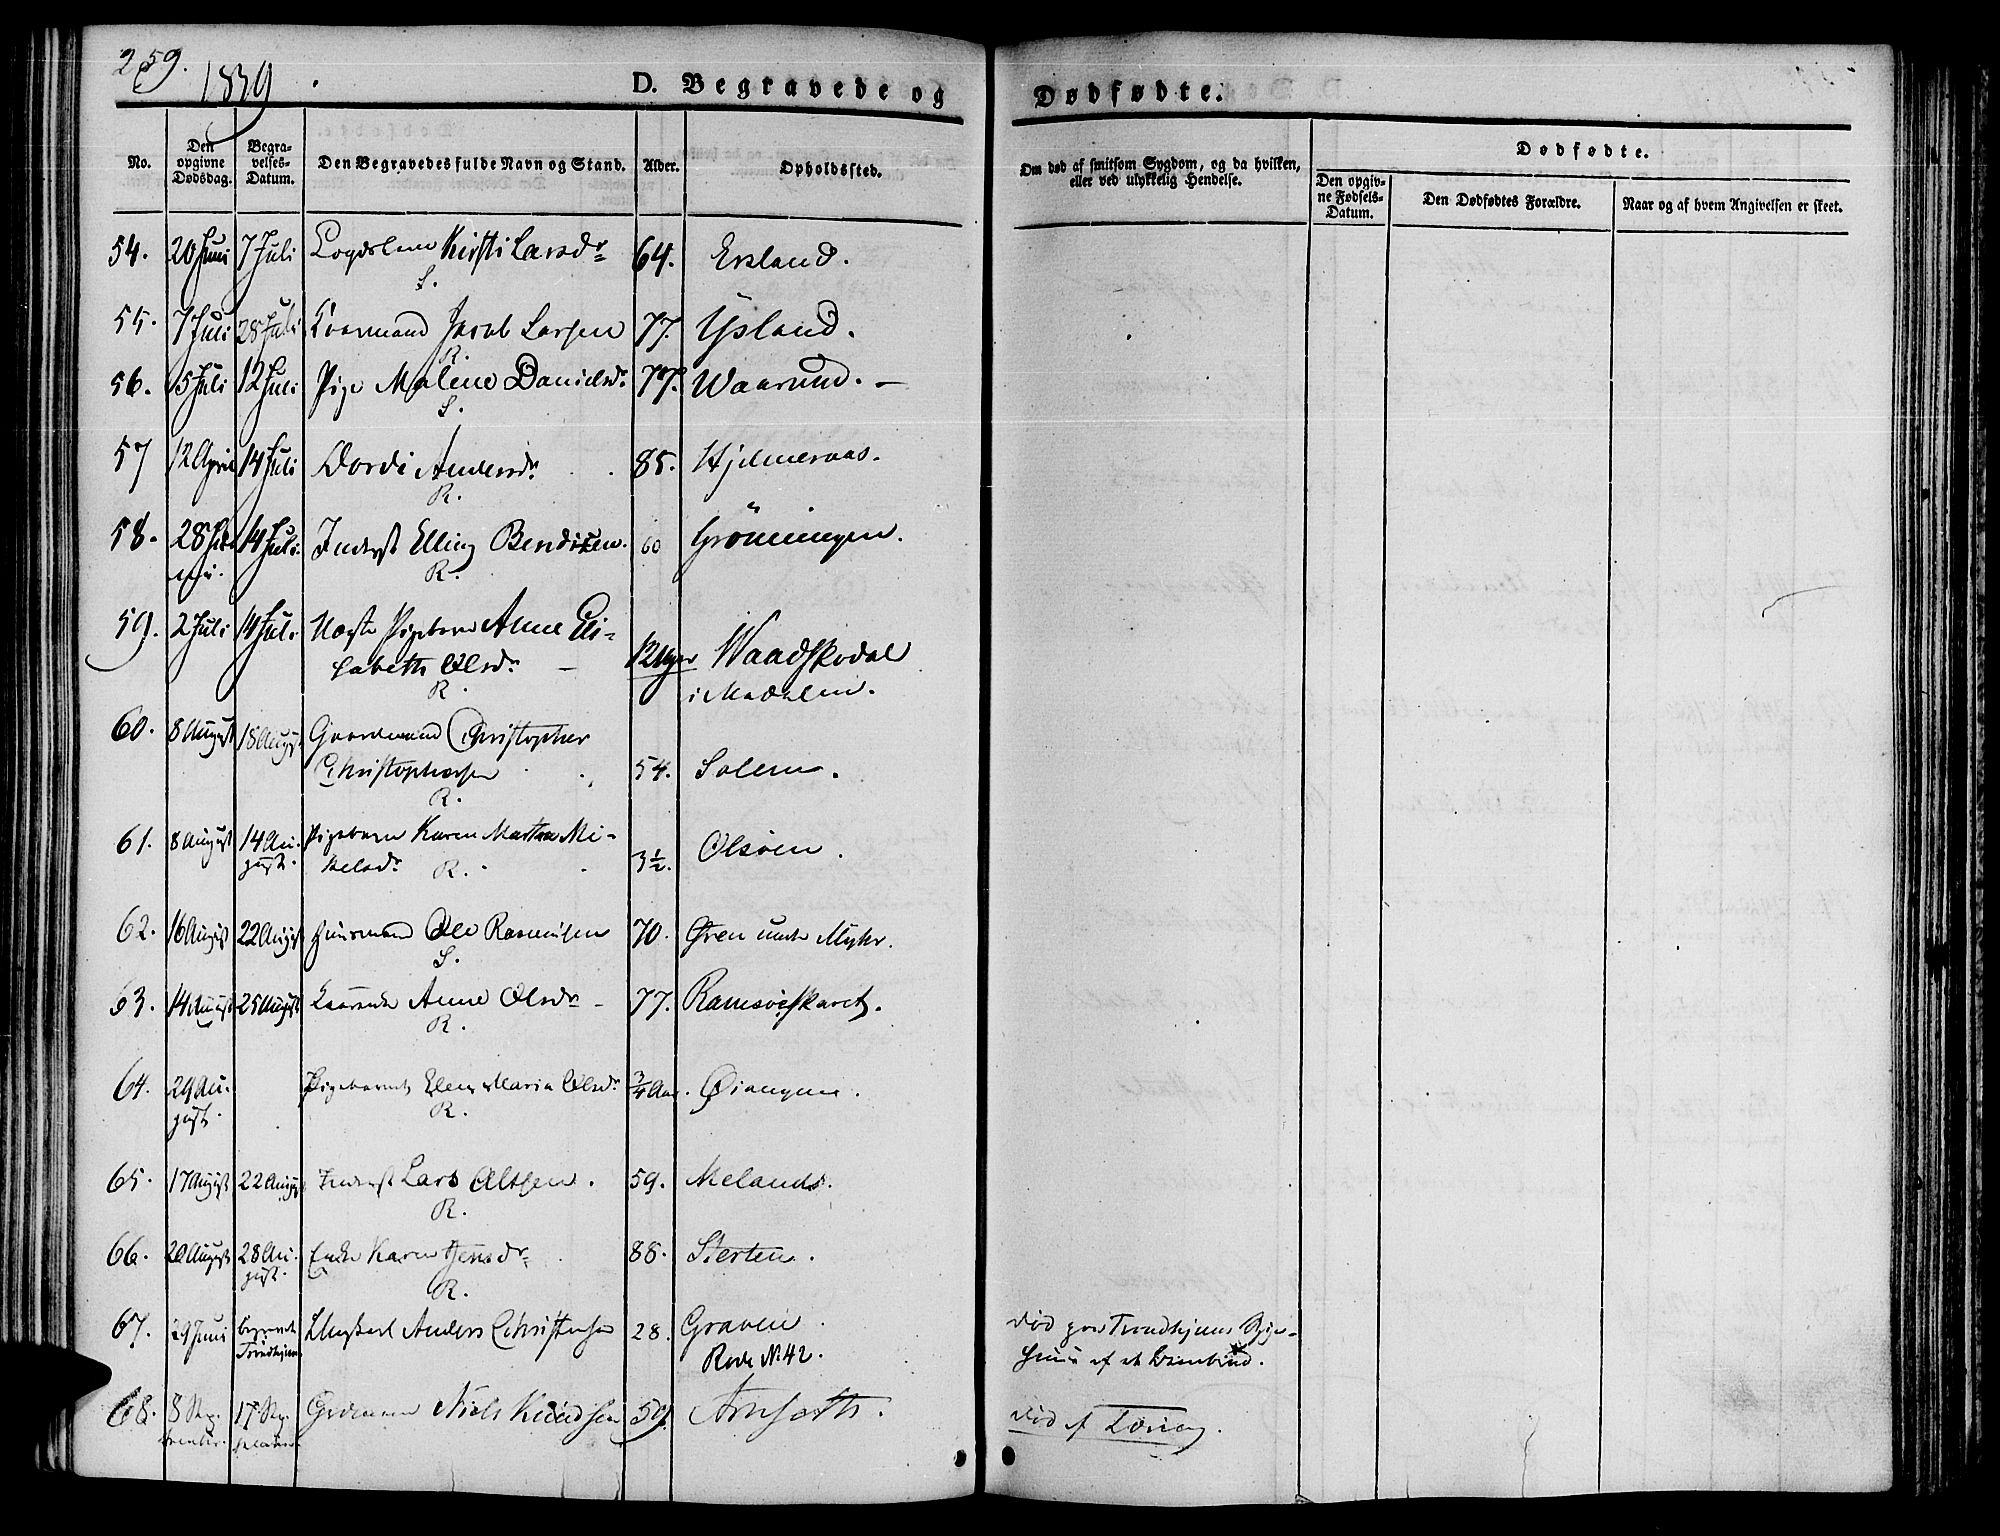 259.
1839
D. Begravede og Dødfødte.
No. Den opgivne Dødsdag. Begravelses-Datum. Den Begravedes fulde Navn og Stand. Alder. Opholdssted. Om død af smitsom Sygdom, og da hvilken, eller ved ulykkelig Hendelse. Dødfødte.
Den opgivne Fødsels-Datum. Den Dødfødtes Forældre. Naar og af hvem Angivelsen er skeet.
54. 20 Juni 7 Juli Kirsti Larsdr 64. Ersland.
S.
55. 7 Juli 28 Juli Jacob Larsen 77. Ysland.
R.
56. 5 Juli 12 Juli Pige Malene Danielsdr 77. Waarund. —
S.
57 12 April 14 Juli Dordi Andersdr 85. Hjelmersaas.
R.
58. 28 Ju- 14 Juli Inderst Elling Bendixen. 60 Grönningen.
ni. R.
59. 2 Juli 14 Juli Pigebarn Anne Eli-
sabeth Olsdr — 12 Uger Waadskodal
R. i Mædalen.
60. 8 August 18 August Gaardmand Christopher
Christophersen 54. Solem.
R.
61. 8 August 14 Au- Pigebarn Karen Martha Mi-
gust. kelsdr R. 3½. Olsöen.
62. 16 August 22 August Huusmand Ole Rasmusen 70. Øren under Myhr.
S.
63. 14 August 25 August Anne Olsdr — 77. Ramsöeskaret.
R.
64. 29 Au- Pigebarnet Elen Maria Olsdr ¾ Aar. Øiangene.
gust. R.
65. 17 August 22 August Inderst Lars Olsen. 59. Melands.
R.
66. 20 August 28 Au- Enke Karen Jensdr 88. Sterten.
gust. R.
67. 29 Juni Ungkarl Anders Christensen 28. Graven. Död paa Trondhjems Syge-
Trondhjem Rode N. 42. huus af et Beenbrud.
68. 8 Sep- 17 Sep- Niels Knudsen 59. Arnseth. Död af
tember. tember.